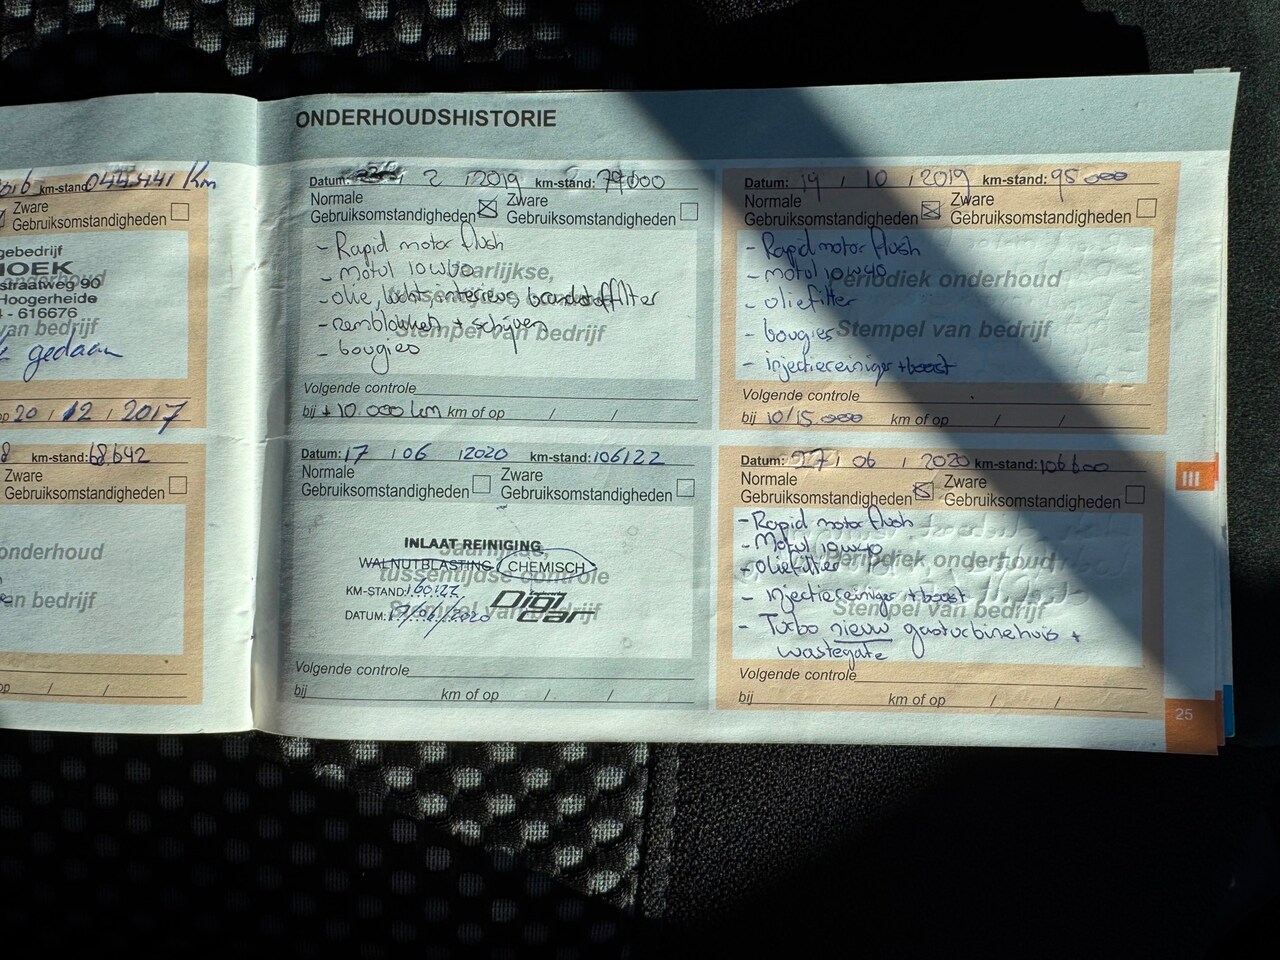 ONDERHOUDSHISTORIE
km-stand: 044441 Km
Zware
Gebruiksomstandigheden
gebedrijf
HOEK
straatweg 90
Hoogerheide
- 616676
van bedrijf
gedaan
op 20 / 12 / 2017
km-stand: 68.642
Zware
Gebruiksomstandigheden
onderhoud
van bedrijf
op / /
Datum: / 2 / 2019 km-stand: 79000
Normale Zware
Gebruiksomstandigheden Gebruiksomstandigheden
- Rapid motor flush
- Motul 10W40
- olie, lucht, interieur, brandstoffilter
- remblokken + schijven
Stempel van bedrijf
- bougies
Volgende controle
bij + 10.000 km km of op / /
Datum: 19 / 10 / 2019 km-stand: 95000
Normale Zware
Gebruiksomstandigheden Gebruiksomstandigheden
- Rapid motor flush
- Motul 10W40
Periodiek onderhoud
- oliefilter
- bougies
Stempel van bedrijf
- injectiereiniger + boost
Volgende controle
bij 10/15.000 km of op / /
Datum: 17 / 06 / 2020 km-stand: 106122
Normale Zware
Gebruiksomstandigheden Gebruiksomstandigheden
INLAAT REINIGING
Jaarlijkse,
WALNUTBLASTING CHEMISCH
tussentijdse controle
KM-STAND: 160122
Digi Car
Stempel van bedrijf
DATUM: 17/06/2020
Volgende controle
bij km of op / /
Datum: 27 / 06 / 2020 km-stand: 106600
Normale Zware
Gebruiksomstandigheden Gebruiksomstandigheden
- Rapid motor flush
- Motul 10W40
Periodiek onderhoud
- oliefilter
- injectiereiniger + boost
Stempel van bedrijf
- Turbo nieuw gasturbinehuis +
wastegate
Volgende controle
bij km of op / /
III
25